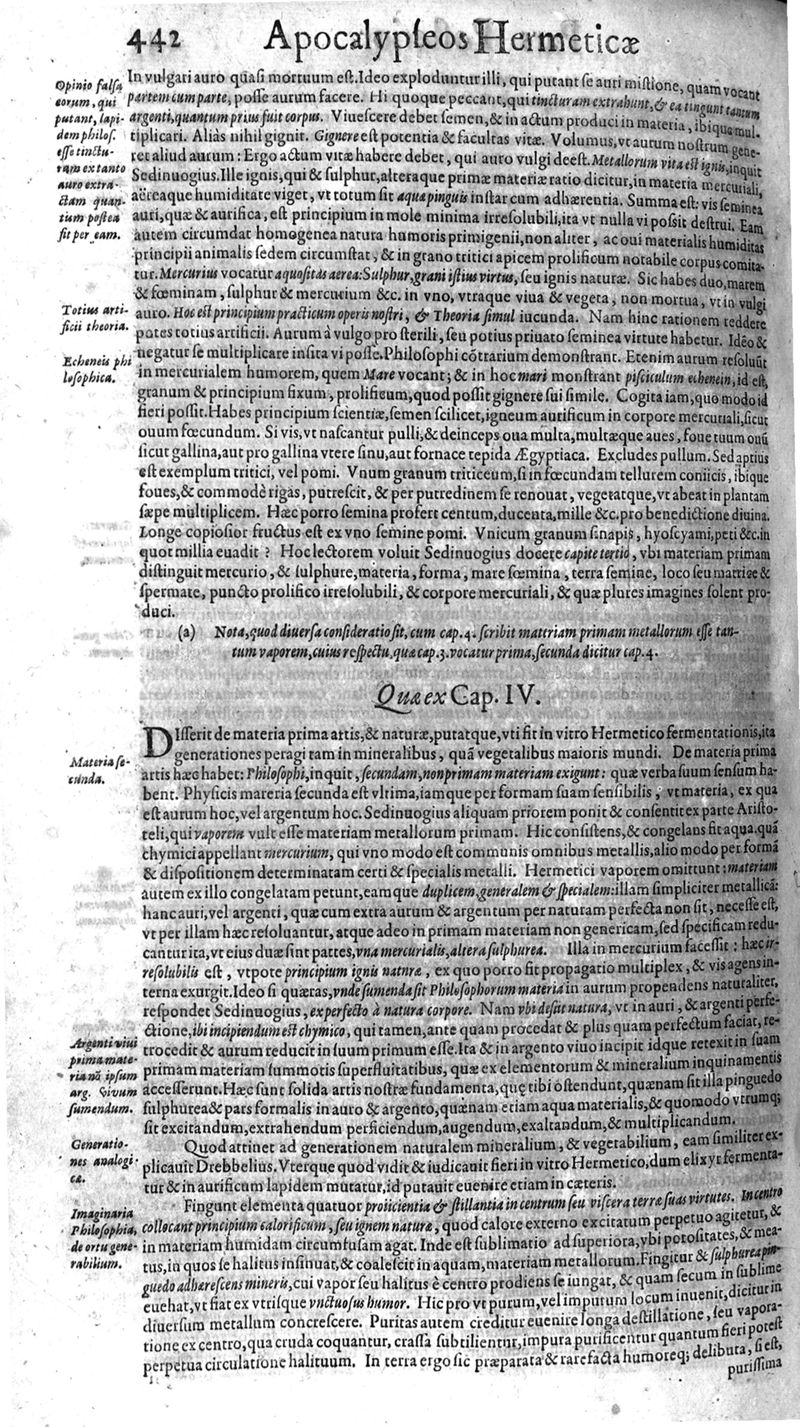 442 Apocalypseos Hermeticæ
Opinio falsa
eorum, qui
putant, lapi-
dem philos.
esse tinctu-
ram ex tanto
auro extra-
ctam quan-
tium postea
fit per eam.
In vulgari auro quasi mortuum est. Ideo exploduntur illi, qui putant se auri mistione, quam vocant
partem cum parte, posse aurum facere. Hi quoque peccant, qui tincturam extrahunt, & ea tingunt tantum
argenti, quantum prius fuit corpus. Viuescere debet semen, & in actum produci in materia, ibique mul-
tiplicari. Aliàs nihil gignit. Gignere est potentia & facultas vitæ. Volumus, vt aurum nostrum gene-
ret aliud aurum: Ergo actum vitæ habere debet, qui auro vulgi deest. Metallorum vita est ignis, inquit
Sedinuogius. Ille ignis, qui & sulphur, alteraque primæ materiæ ratio dicitur, in materia mercuriali,
aëreaque humiditate viget, vt totum sit aqua pinguis instar cum adhærentia. Summa est: vis seminea
auri, quæ & aurifica, est principium in mole minima irresolubili, ita vt nulla vi possit destrui. Eam
autem circumdat homogenea natura humoris primigenii, non aliter, ac oui materialis humiditas
principii animalis sedem circumstat, & in grano tritici apicem prolificum notabile corpus comita-
tur. Mercurius vocatur aquositas aerea: Sulphur, grani istius virtus, seu ignis naturæ. Sic habes duo, marem
& fœminam, sulphur & mercurium &c. in vno, vtraque viua & vegeta, non mortua, vt in vulgi
Totius arti-
ficii theoria.
auro. Hoc est principium practicum operis nostri, & Theoria simul iucunda. Nam hinc rationem reddere
potes totius artificii. Aurum à vulgo pro sterili, seu potius priuato seminea virtute habetur. Ideo &
Echeneis phi
losophica.
negatur se multiplicare insita vi posse. Philosophi cōtrarium demonstrant. Etenim aurum resoluūt
in mercurialem humorem, quem Mare vocant; & in hoc mari monstrant pisciculum echenein, id est,
granum & principium fixum, prolificum, quod possit gignere sui simile. Cogita iam, quo modo id
fieri possit. Habes principium scientiæ, semen scilicet, igneum aurificum in corpore mercuriali, sicut
ouum fœcundum. Si vis, vt nascantur pulli, & deinceps oua multa, multæque aues, foue tuum ouū
sicut gallina, aut pro gallina vtere sinu, aut fornace tepida Ægyptiaca. Excludes pullum. Sed aptius
est exemplum tritici, vel pomi. Vnum granum triticeum, si in fœcundam tellurem coniicis, ibique
foues, & commodè rigas, putrescit, & per putredinem se renouat, vegetatque, vt abeat in plantam
sæpe multiplicem. Hæc porro semina profert centum, ducenta, mille &c. pro benedictione diuina.
Longe copiosior fructus est ex vno semine pomi. Vnicum granum sinapis, hyoscyami, peti &c. in
quot millia euadit? Hoc lectorem voluit Sedinuogius docere capite tertio, vbi materiam primam
distinguit mercurio, & sulphure, materia, forma, mare fœmina, terra semine, loco seu matrice &
spermate, puncto prolifico irresolubili, & corpore mercuriali, & quæ plures imagines solent pro-
duci.
(a) Nota, quod diuersa consideratio sit, cum cap. 4. scribit materiam primam metallorum esse tan-
tum vaporem, cuius respectu, qua cap. 3. vocatur prima, secunda dicitur cap. 4.
Quæ ex Cap. IV.
Materia se-
cunda.
DIsserit de materia prima artis, & naturæ, putatque, vti fit in vitro Hermetico fermentationis, ita
generationes peragi tam in mineralibus, quā vegetalibus maioris mundi. De materia prima
artis hæc habet: Philosophi, inquit, secundam, non primam materiam exigunt: quæ verba suum sensum ha-
bent. Physicis materia secunda est vltima, iamque per formam suam sensibilis, vt materia, ex qua
est aurum hoc, vel argentum hoc. Sedinuogius aliquam priorem ponit & consentit ex parte Aristo-
teli, qui vaporem vult esse materiam metallorum primam. Hic consistens, & congelans fit aqua. quā
chymici appellant mercurium, qui vno modo est communis omnibus metallis, alio modo per formā
& dispositionem determinatam certi & specialis metalli. Hermetici vaporem omittunt: materiam
autem ex illo congelatam petunt, eamque duplicem, generalem & specialem: illam simpliciter metallicā:
hanc auri, vel argenti, quæ cum extra aurum & argentum per naturam perfecta non sit, necesse est,
vt per illam hæc resoluantur, atque adeo in primam materiam non genericam, sed specificam redu-
cantur ita, vt eius duæ sint partes, vna mercurialis, altera sulphurea. Illa in mercurium facessit: hæc ir-
resolubilis est, vtpote principium ignis naturæ, ex quo porro fit propagatio multiplex, & vis agens in-
terna exurgit. Ideo si quæras, vnde sumenda sit Philosophorum materia in aurum propendens naturaliter,
respondet Sedinuogius, ex perfecto à natura corpore. Nam vbi desiit natura, vt in auri, & argenti perfe-
Argenti viui
prima mate-
ria nā ipsum
arg. vivum
sumendum.
ctione, ibi incipiendum est chymico, qui tamen, ante quam procedat & plus quam perfectum faciat, re-
trocedit & aurum reducit in suum primum esse. Ita & in argento viuo incipit idque retexit in suam
primam materiam summotis superfluitatibus, quæ ex elementorum & mineralium inquinamentis
accesserunt. Hæc sunt solida artis nostræ fundamenta, quę tibi ostendunt, quænam sit illa pinguedo
sulphurea & pars formalis in auro & argento, quænam etiam aqua materialis, & quomodo vtrumq;
sit excitandum, extrahendum perficiendum, augendum, exaltandum, & multiplicandum.
Generatio-
nes analogi-
cæ.
Quod attinet ad generationem naturalem mineralium, & vegetabilium, eam similiter ex-
plicauit Drebbelius. Vterque quod vidit & iudicauit fieri in vitro Hermetico, dum elixyr fermenta-
tur & in aurificum lapidem mutatur, id putauit euenire etiam in cæteris.
Imaginaria
Philosophia,
de ortu gene-
rabilium.
Fingunt elementa quatuor proiicientia & stillantia in centrum seu viscera terræ suas virtutes. In centro
collocant principium calorificum, seu ignem naturæ, quod calore externo excitatum perpetuo agitetur, &
in materiam humidam circumfusam agat. Inde est sublimatio ad superiora, vbi porositates, & mea-
tus, in quos se halitus insinuat, & coalescit in aquam, materiam metallorum. Fingitur & sulphurea pin-
guedo adhærescens mineris, cui vapor seu halitus è centro prodiens se iungat, & quam secum in sublime
euehat, vt fiat ex vtrisque vnctuosus humor. Hic pro vt purum, vel impurum locum inuenit, dicitur in
diuersum metallum concrescere. Puritas autem creditur euenire longa destillatione, seu vapora-
tione ex centro, qua cruda coquantur, crassa subtilientur, impura purificentur quantum fieri potest
perpetua circulatione halituum. In terra ergo sic præparata & rarefacta humoreq; delibuta, si est,
purissima